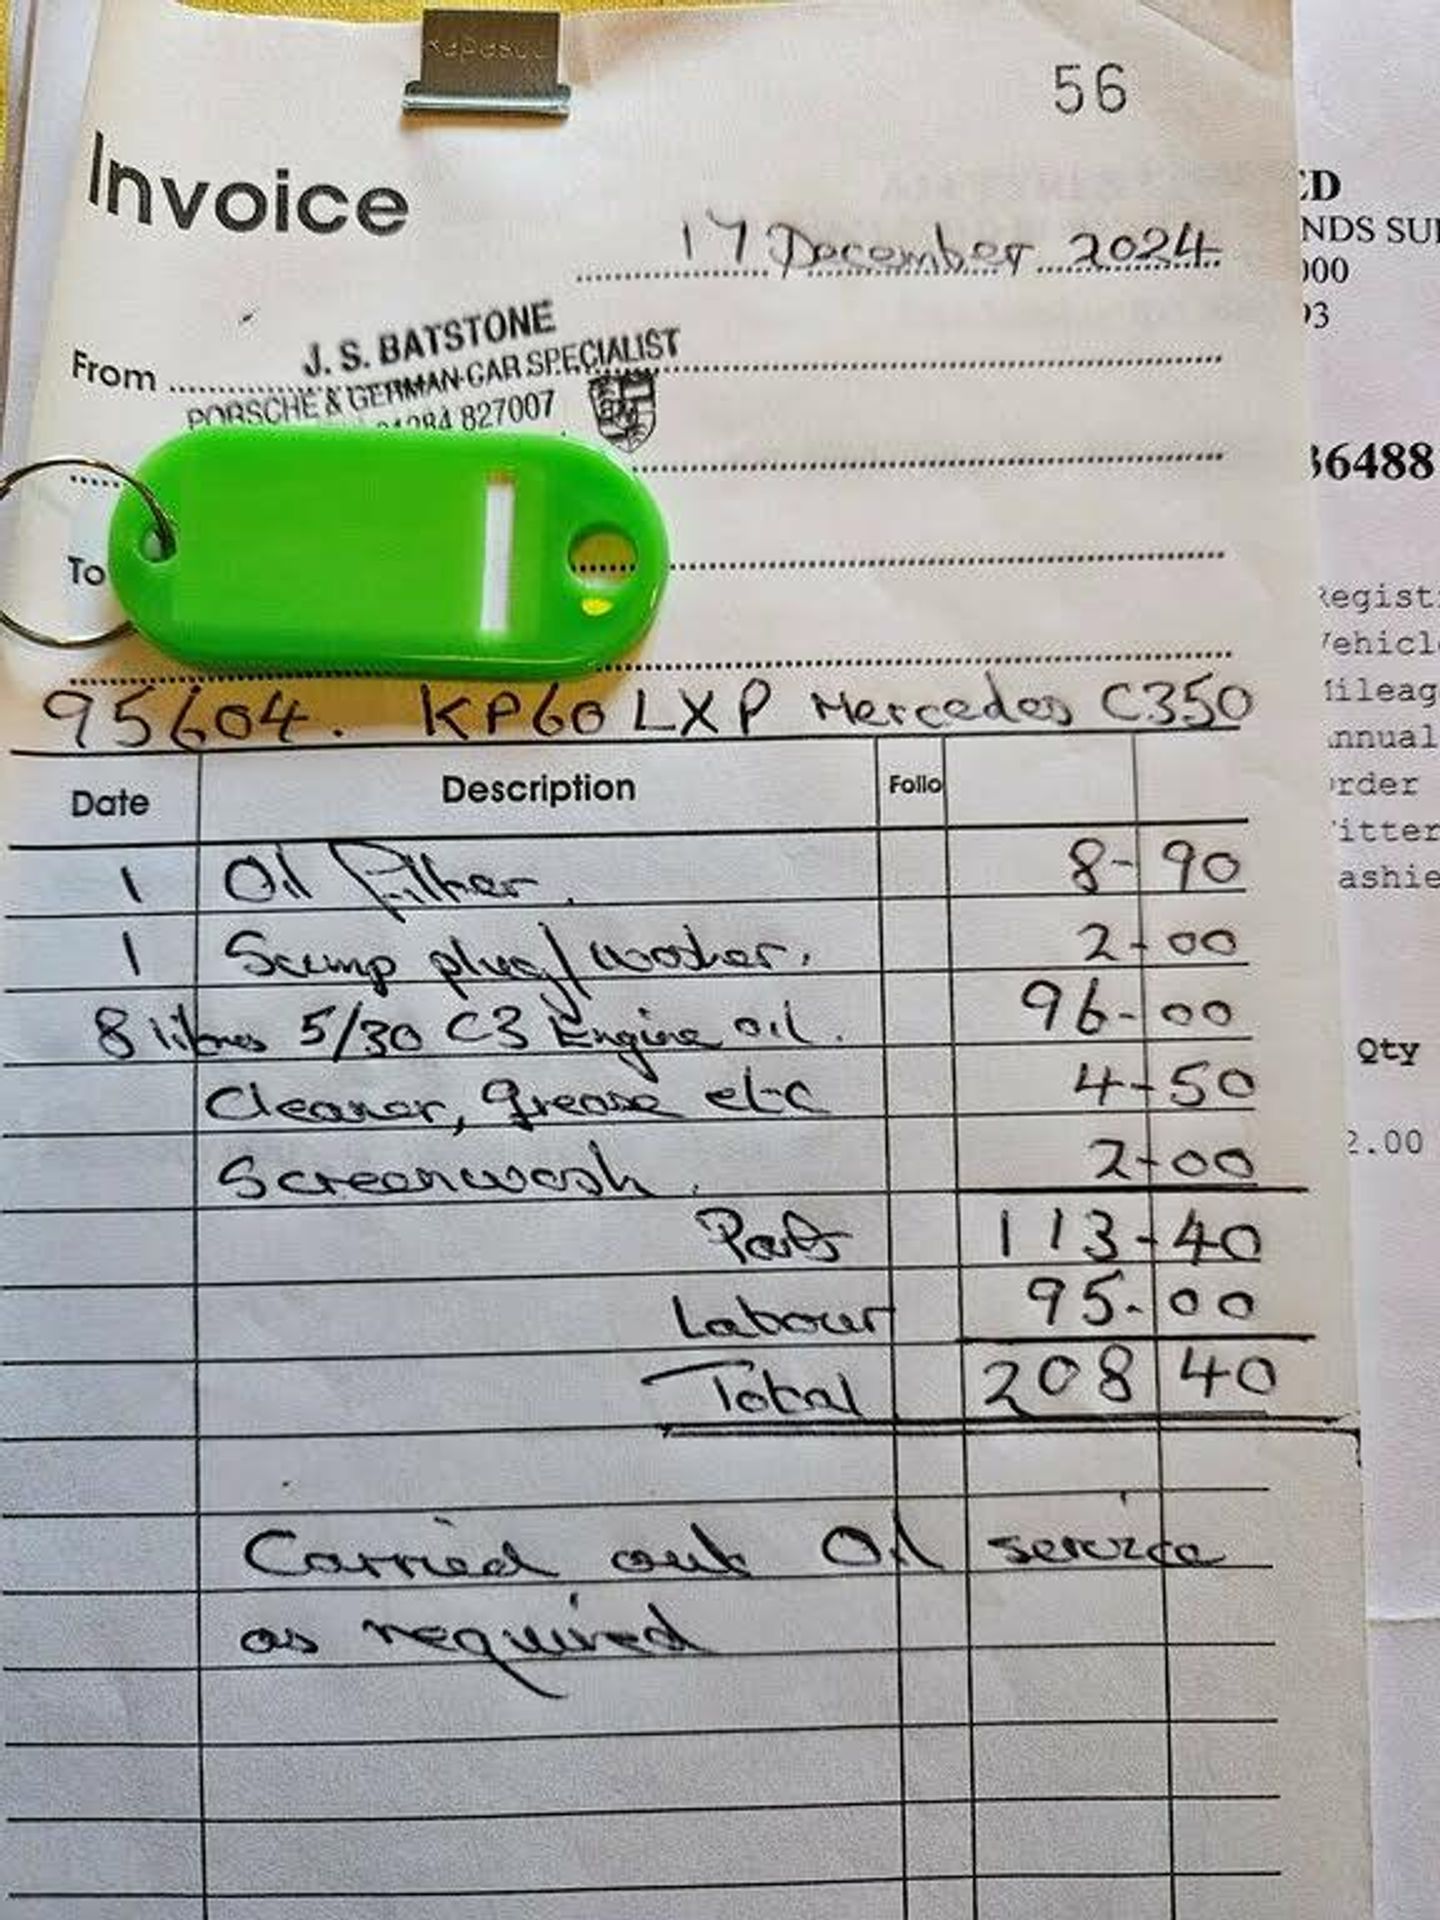 56
Invoice
17 December 2024
From
J. S. BATSTONE
PORSCHE & GERMAN CAR SPECIALIST
01284 827007
To
95604. KP60 LXP Mercedes C350
Date Description Folio
1 Oil Filter. 8-90
1 Sump plug/washer. 2-00
8 litres 5/30 C3 Engine oil. 96-00
Cleaner, grease etc 4-50
Screenwash. 2-00
Parts 113-40
Labour 95-00
Total 208 40
Carried out Oil service
as required
ED
NDS SU
000
93
36488
Regist
Vehicl
Mileag
Annual
Order
Fitter
Cashie
Qty
2.00